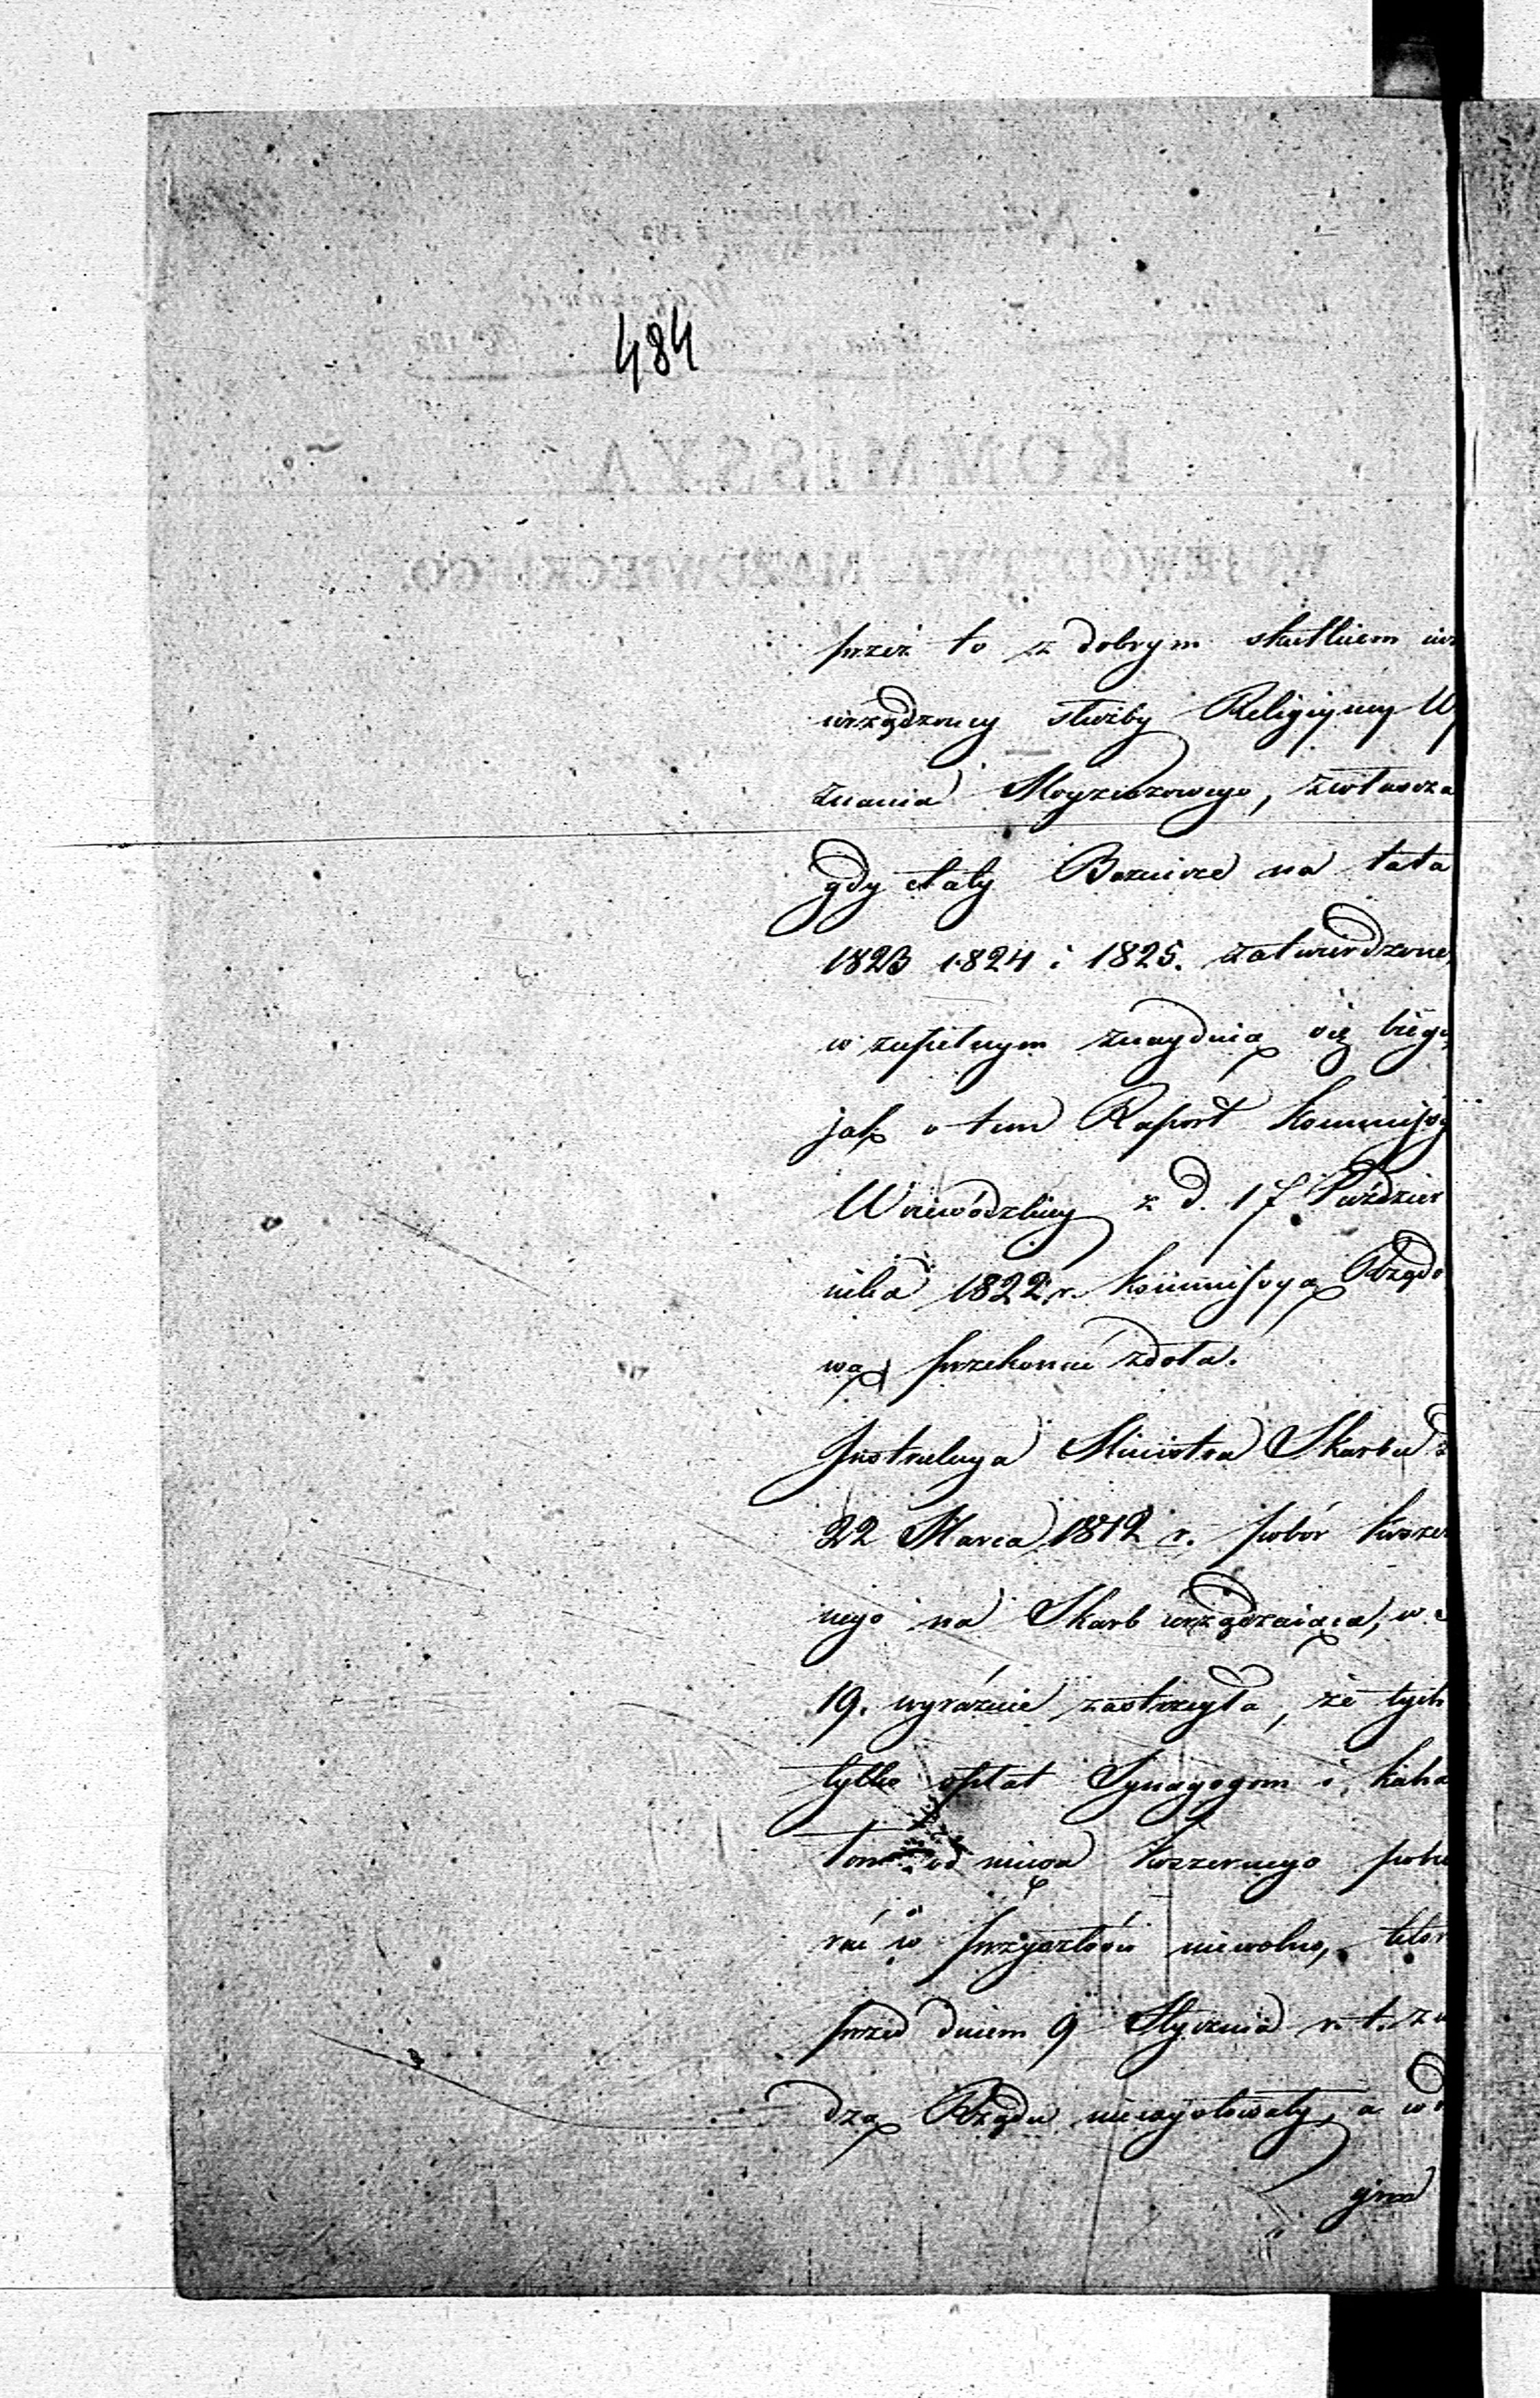 484
przez to z dobrym skutkiem
urządzoney służby Religiyney W
znania Moyżeszowego, zwłaszcza
gdy etaty Boznicze na lata
1823 1824 i 1825. zatwierdzone,
w zupełnym znayduią się biegu
jak o tem Raport Kommissyi
Woiewódzkiey z d. 17 Paździer
nika 1822 r. Kommissyą Rządo
wą przekonać zdoła.
Instrukcya Ministra Skarbu z
22 Marca 1812 r. pobór koszer
nego na Skarb urządzaiąca, w
19. wyraźnie zastrzegła, że tych
tylko opłat Synagogom i Kaha
łom od mięsa koszernego pobie
rać w przyszłości niewolno, któr
przed dniem 9 Stycznia r. t. z w
dzą Rządu nieexystowały, a wd